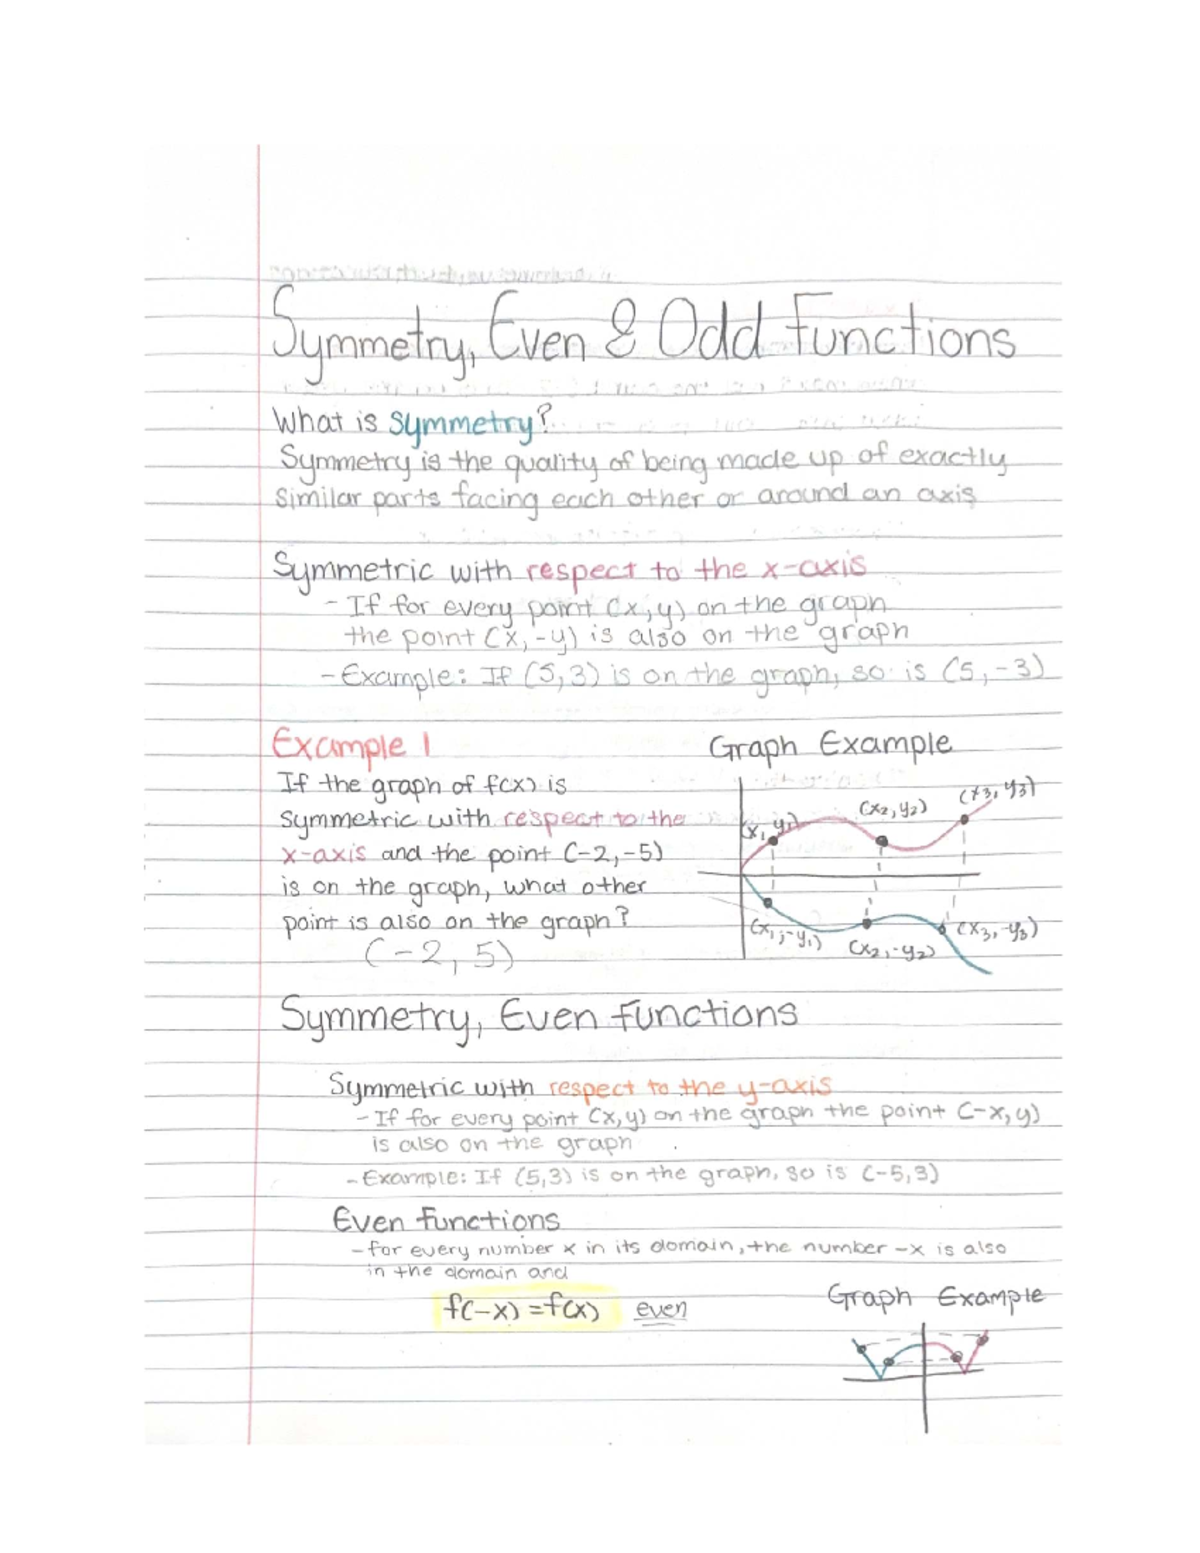 Symmetry, Even & Odd Functions
What is symmetry?
Symmetry is the quality of being made up of exactly
similar parts facing each other or around an axis
Symmetric with respect to the x-axis
- If for every point (x,y) on the graph
the point (x,-y) is also on the graph
- Example: If (5,3) is on the graph, so is (5,-3)
Example 1
If the graph of f(x) is
symmetric with respect to the
x-axis and the point (-2,-5)
is on the graph, what other
point is also on the graph?
(-2,5)
Graph Example
(x1,y1)
(x2,y2)
(x3,y3)
(x1,-y1)
(x2,-y2)
(x3,-y3)
Symmetry, Even Functions
Symmetric with respect to the y-axis
- If for every point (x,y) on the graph the point (-x,y)
is also on the graph
- Example: If (5,3) is on the graph, so is (-5,3)
Even Functions
- for every number x in its domain, the number -x is also
in the domain and
f(-x)=f(x) even
Graph Example